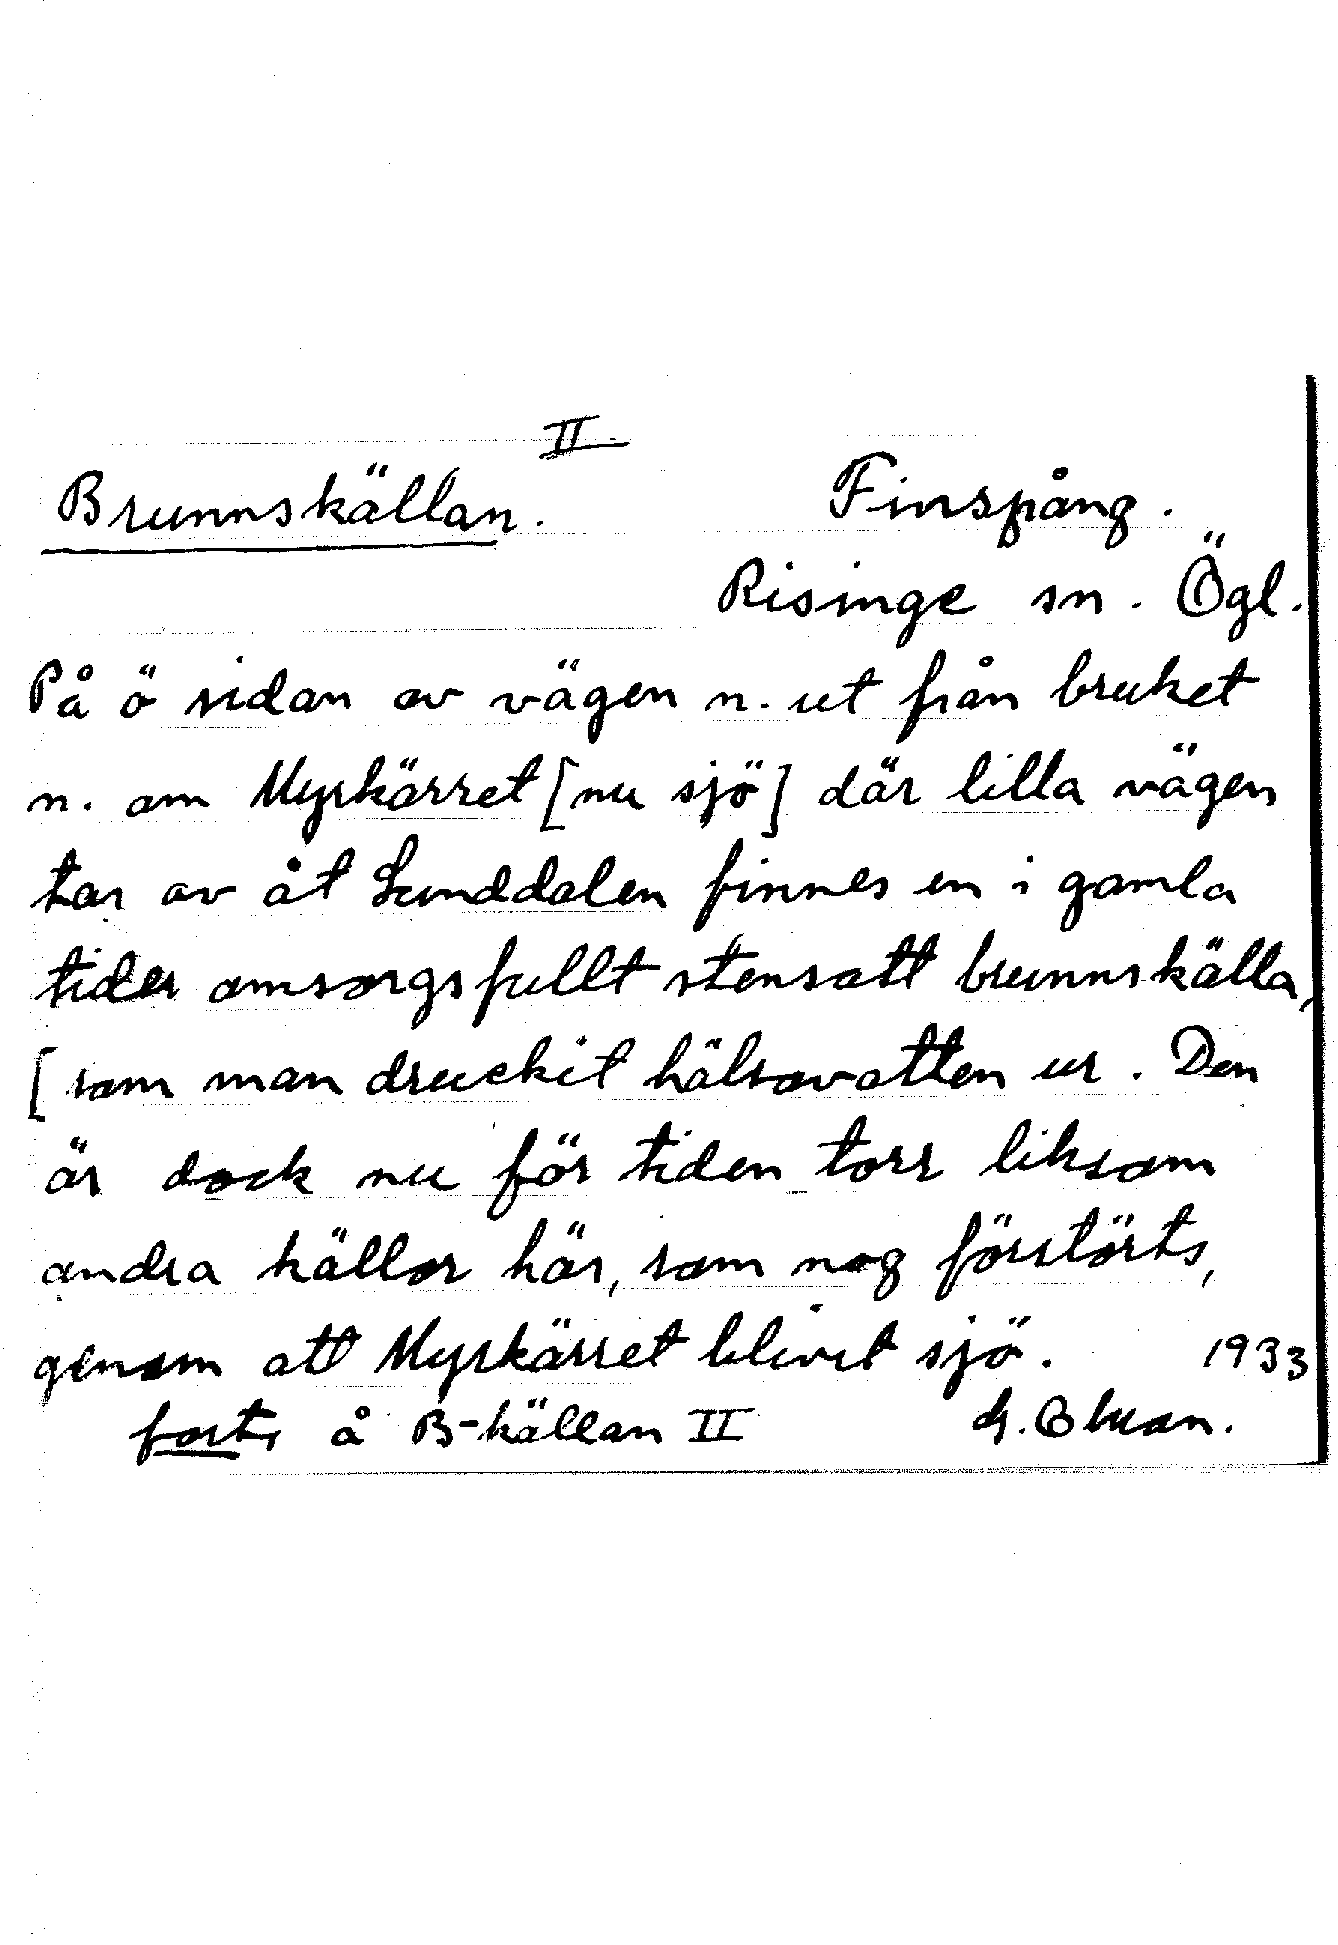 II
Brunnskällan. Finspång.
Risinge sn. Ögl.
På ö sidan av vägen n. ut från bruket
n. om Myrkärret [nu sjö] där lilla vägen
tar av åt Lunddalen finnes en i gamla
tider omsorgsfullt stensatt brunnskälla,
[som man druckit hälsovatten ur. Den
är dock nu för tiden torr liksom
andra källor här, som nog förstörts,
genom att Myrkärret blivit sjö. 1933
forts å B-källan II